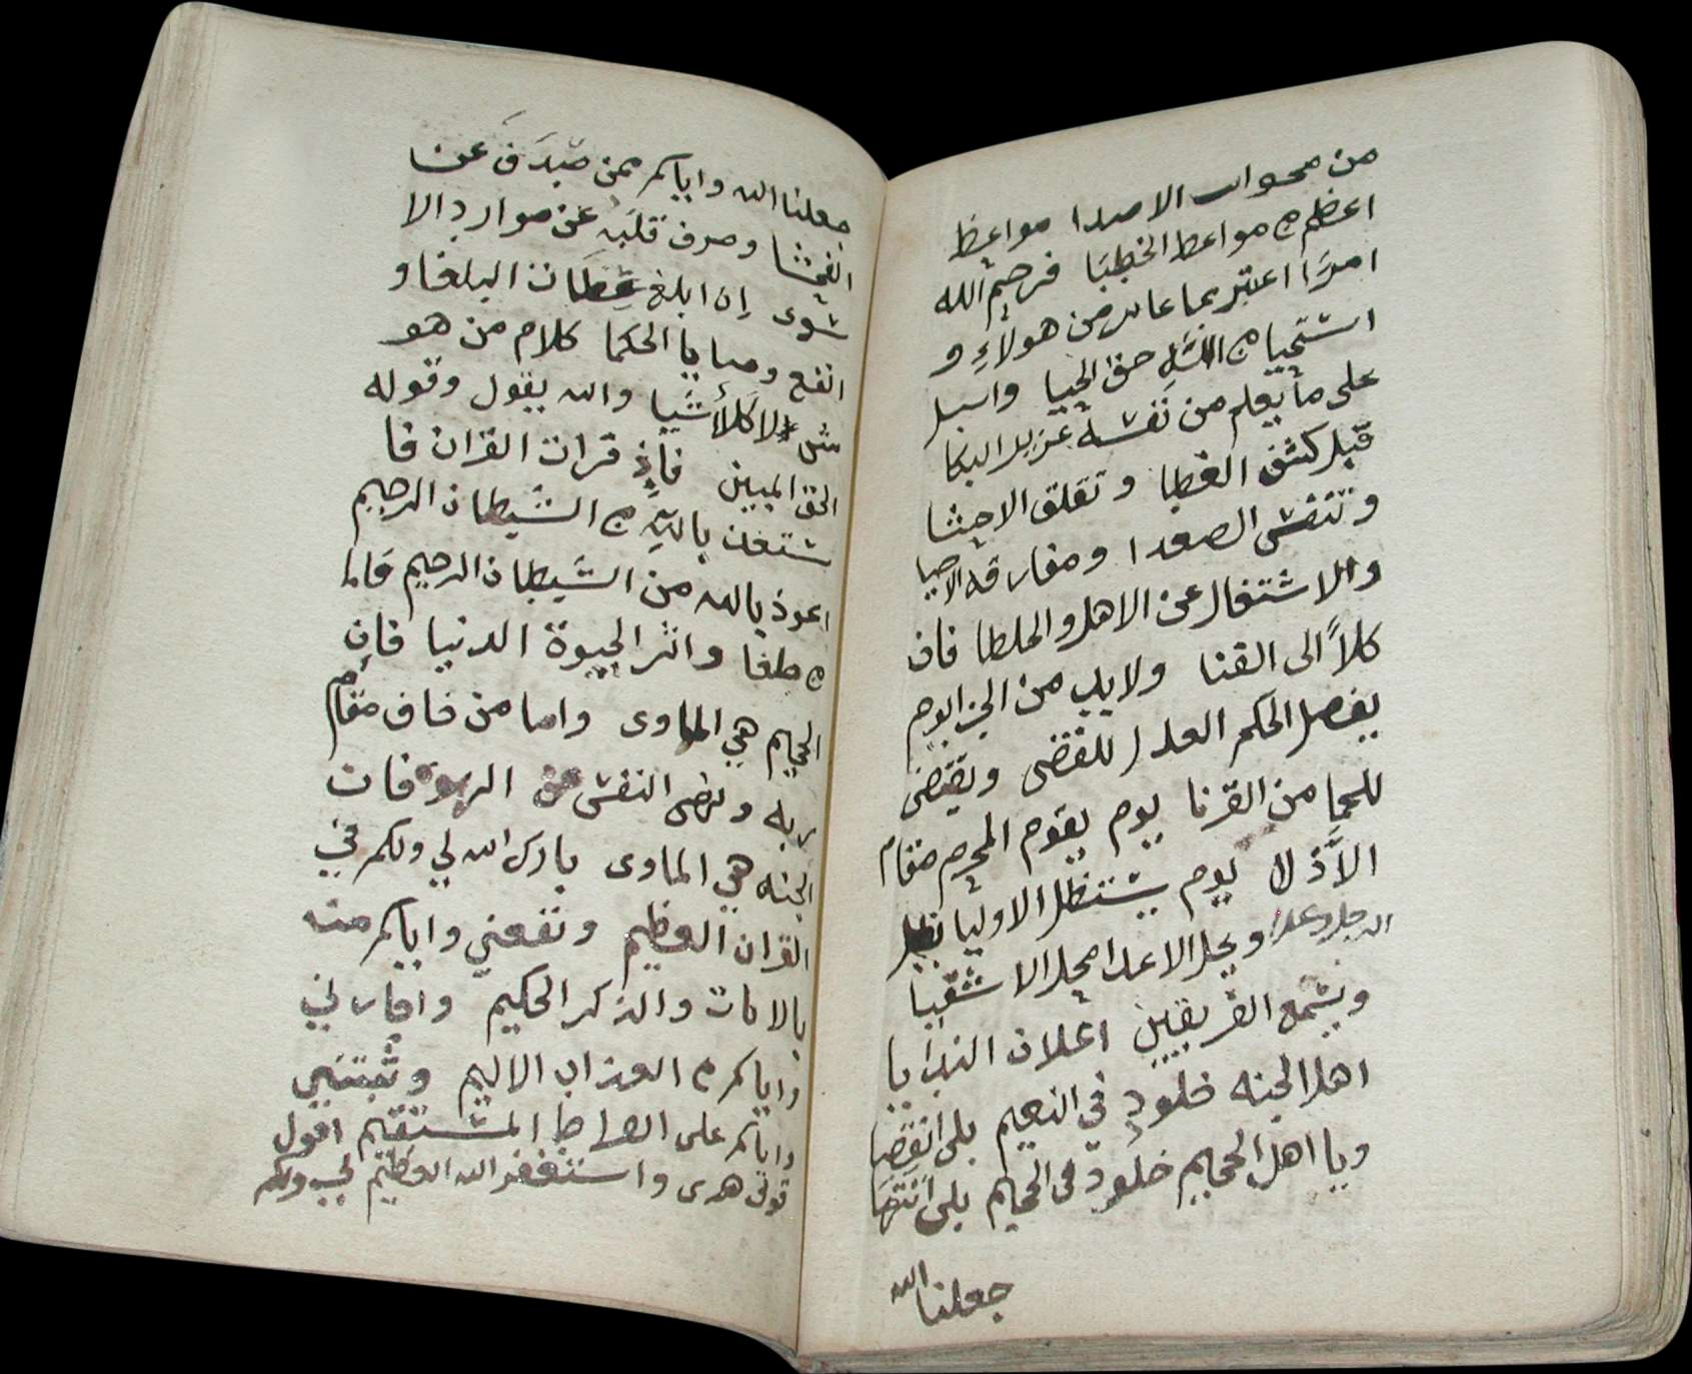 من محوات الاصدا مواعظ
اعظم من مواعظ الخطبا فرحم الله
امرًا اعتبر بما عاين من هولاءِ و
استحيا من الله حق الحيا واسبل
على ما يعلم من نفسه غزير البكا
قبل كشف الغطا وتقلق الاحشا
وتنفس الصعدا ومفارقه الاحيا
والاشتغال عن الاهل والخلطا فان
كلاً الى الفنا ولا بد من الجزا يوم
يفصل الحكم العدل للقضى ويقتضى
للجما من القرنا يوم يقوم المجرم مقام
الأذلا يوم يستظل الاوليا بظل
الرجل وعلا ويحل الاعدا محل الاشقيا
ويسمع الفريقين اعلان الندا يا
اهل الجنه خلود في النعيم بلى انقضا
ويا اهل الجحيم خلود فى الجحيم بلى انتها
جعلنا الله
جعلنا الله واياكم ممن صدَفَ عَن
الفحشا وصرف قلبَه عن موارد الا
سوى إن ابلغ عِظَات البلغا و
انفع وصايا الحكما كلام من هو
شى لا كَلأشيا والله يقول وقوله
الحق المبين فإذ قرات القران فا
ستعذ بالله من الشيطان الرجيم
اعوذ بالله من الشيطان الرجيم فاما
من طغا واثر الحيوة الدنيا فان
الجحيم هي الماوى واما من خاف مقام
ربه ونهى النفس عن الهوى فان
الجنه هي الماوى بارك الله لي ولكم في
القران العظيم ونفعني واياكم منه
بالايات والذكر الحكيم واجارني
واياكم من العذاب الاليم وثبتني
واياكم على الصراط المستقيم اقول
قولى هدى واستغفر الله العظيم لي ولكم